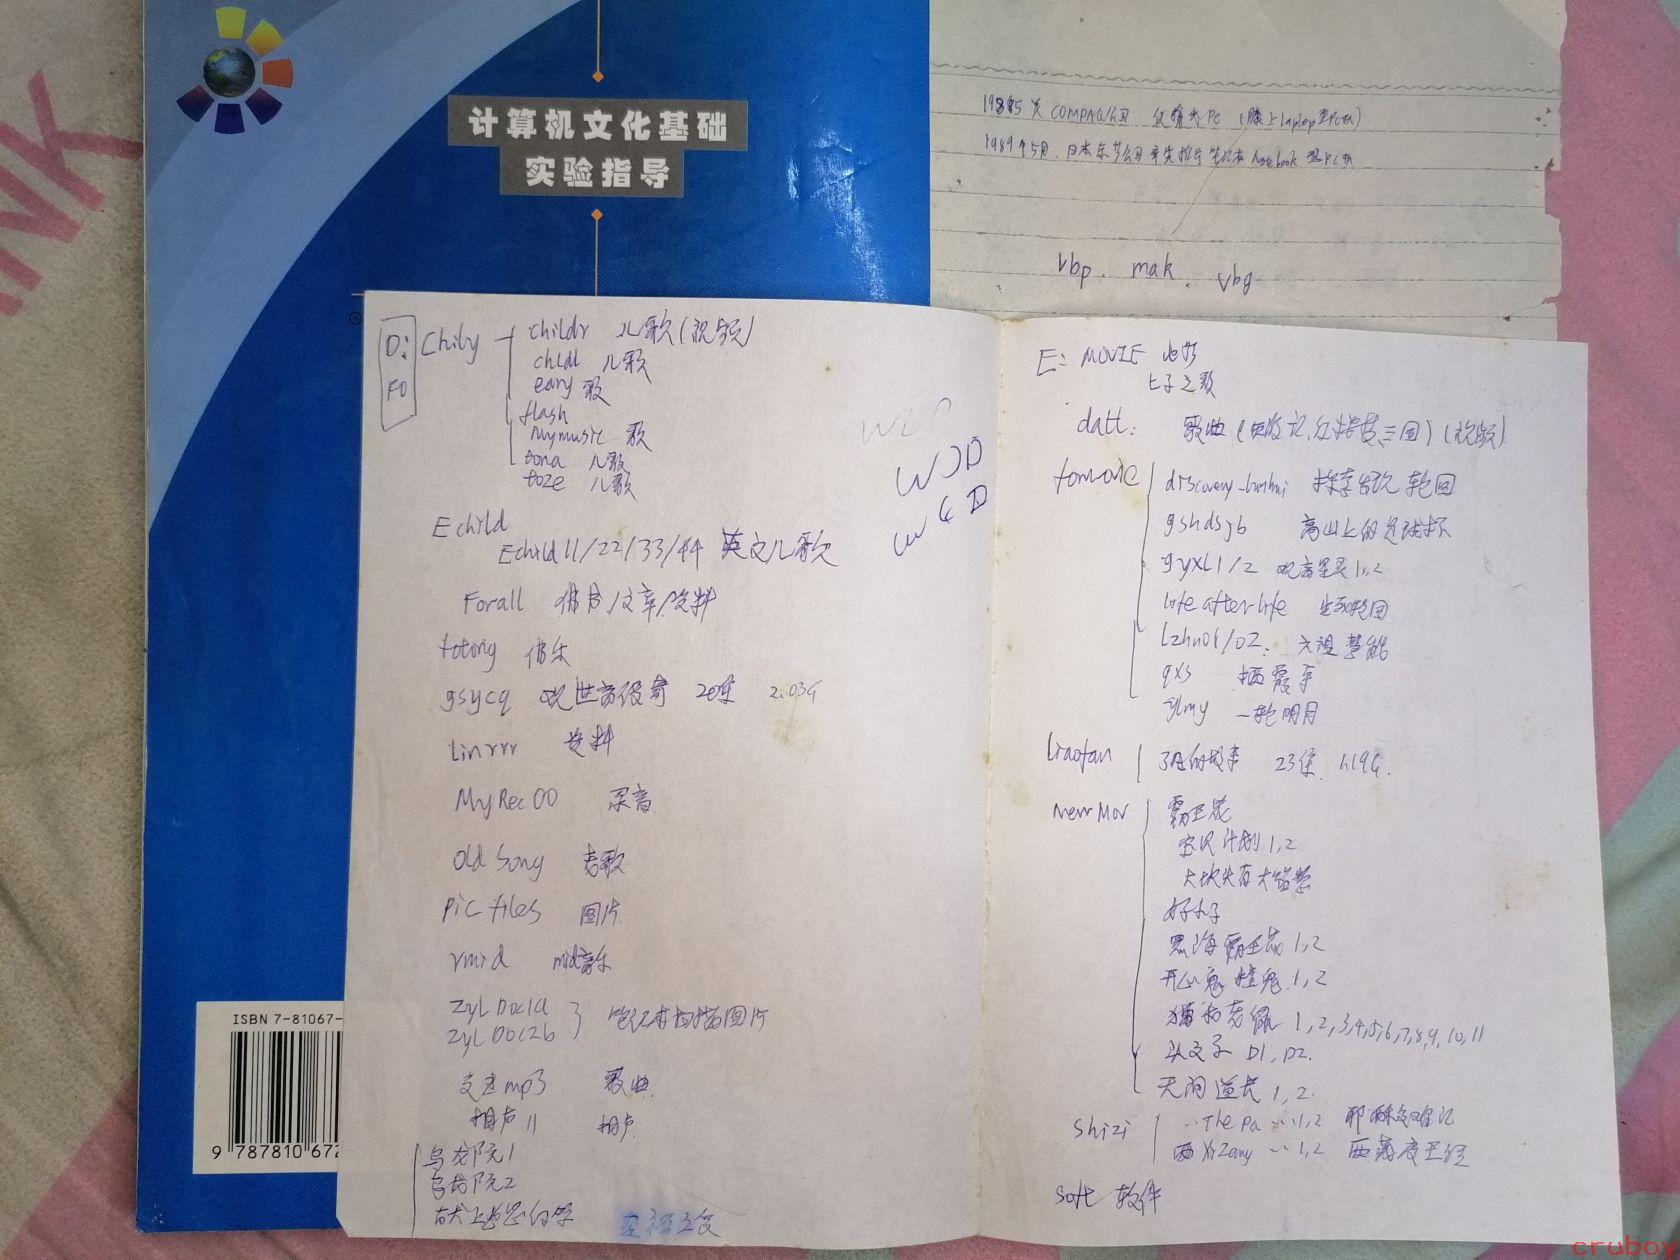 计算机文化基础
实验指导
COMPAQ公司 PC (膝上laptop型PC机)
1989年5月. 日本东芝公司率先推出笔记本 Notebook 型PC机
vbp. mak. vbg
D: Chily childr 儿歌(视频)
F0
child 儿歌
eany 歌
flash
Mymusic 歌
tona 儿歌
toze 儿歌
WJD
W4D
Echild
Echild11/22/33/44 英文儿歌
Forall 佛片/文章/资料
fotong 佛乐
gsycq 观世音传奇 20集 2.03G
linrrr 资料
MyRec00 录音
Old Song 老歌
Pic files 图片
rmid mid音乐
ZylDoc1a
ZylDoc2b 笔记本扫描图片
mp3 歌曲
相声11 相声
乌龙院1
乌龙院2
E: MOVIE 电影
七子之歌
datt: 歌曲(西游记、红楼梦、三国)(视频)
discovery_lunhui 探索发现 轮回
gshdsjb 高山上的世界杯
gyxl1/2 观音显灵1,2
life after life 生死轮回
Lzhn01/02: 六祖慧能
qxs 栖霞寺
ylmy 一轮明月
Liaofan 了凡的故事 23集 1.19G.
NewMov 霸王花
宝贝计划1,2
大块头有大智慧
好小子
黑海霸王花1,2
开心鬼撞鬼1,2
猫和老鼠 1,2,3,4,5,6,7,8,9,10,11
头文字 D1,D2.
天师道长1,2
Shizi ··The Pa ···1,2 耶稣受难记
西XiZang ··1,2 西藏度亡经
Soft 软件
ISBN 7-81067-
9 787810 672
cruboy